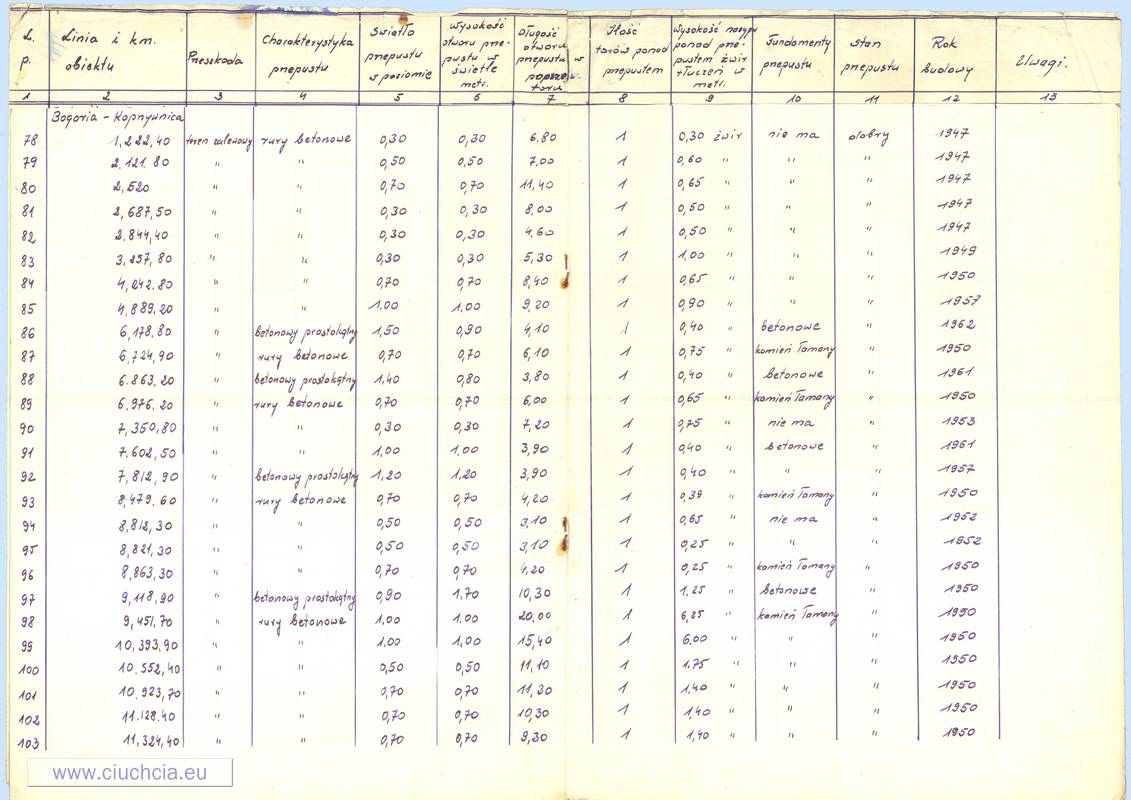 L. p. | Linia i km. obiektu | Przeszkoda | Charakterystyka przepustu | Światło przepustu w poziomie | Wysokość otworu prze- pustu w świetle metr. | Długość otworu przepustu w poprzek toru | Ilość torów ponad przepustem | Wysokość nasypu ponad prze- pustem żwir + tłuczeń w metr. | Fundamenty przepustu | Stan przepustu | Rok budowy | Uwagi.
1 | 2 | 3 | 4 | 5 | 6 | 7 | 8 | 9 | 10 | 11 | 12 | 13
Bogoria - Koprzywnica
78 | 1,222,40 | teren zalewowy | rury betonowe | 0,30 | 0,30 | 6.80 | 1 | 0,30 żwir | nie ma | dobry | 1947
79 | 2.121.80 | " | " | 0,50 | 0,50 | 7.00 | 1 | 0,60 " | " | " | 1947
80 | 2,520 | " | " | 0,70 | 0,70 | 11,40 | 1 | 0,65 " | " | " | 1947
81 | 2,687,50 | " | " | 0,30 | 0,30 | 8,00 | 1 | 0,50 " | " | " | 1947
82 | 2.844,40 | " | " | 0,30 | 0,30 | 4,60 | 1 | 0,50 " | " | " | 1947
83 | 3,257,80 | " | " | 0,30 | 0,30 | 5,30 | 1 | 1.00 " | " | " | 1949
84 | 4,242.80 | " | " | 0,70 | 0,70 | 8,40 | 1 | 0,65 " | " | " | 1950
85 | 4,889.20 | " | " | 1.00 | 1,00 | 9,20 | 1 | 0,90 " | " | " | 1957
86 | 6,178.80 | " | betonowy prostokątny | 1,50 | 0,90 | 4,10 | 1 | 0,40 " | betonowe | " | 1962
87 | 6,724,90 | " | rury betonowe | 0,70 | 0,70 | 6,10 | 1 | 0,75 " | kamień łamany | " | 1950
88 | 6.863,20 | " | betonowy prostokątny | 1,40 | 0,80 | 3,80 | 1 | 0,40 " | betonowe | " | 1961
89 | 6.976.20 | " | rury betonowe | 0,70 | 0,70 | 6,00 | 1 | 0,65 " | kamień łamany | " | 1950
90 | 7,350,80 | " | " | 0,30 | 0,30 | 7,20 | 1 | 0,75 " | nie ma | " | 1953
91 | 7.602,50 | " | " | 1,00 | 1,00 | 3,90 | 1 | 0,40 " | betonowe | " | 1961
92 | 7,812,90 | " | betonowy prostokątny | 1,20 | 1,20 | 3,90 | 1 | 0,40 " | " | " | 1957
93 | 8,479.60 | " | rury betonowe | 0,70 | 0,70 | 4,20 | 1 | 0,39 " | kamień łamany | " | 1950
94 | 8,812,30 | " | " | 0,50 | 0,50 | 3,10 | 1 | 0,65 " | nie ma | " | 1952
95 | 8,821,30 | " | " | 0,50 | 0,50 | 3,10 | 1 | 0,25 " | " | " | 1952
96 | 8,863,30 | " | " | 0,70 | 0,70 | 4,20 | 1 | 0,25 " | kamień łamany | " | 1950
97 | 9,118,90 | " | betonowy prostokątny | 0,90 | 1,70 | 10,30 | 1 | 1.25 " | betonowe | " | 1950
98 | 9,451,70 | " | rury betonowe | 1,00 | 1,00 | 20,00 | 1 | 6,25 " | kamień łamany | " | 1950
99 | 10,393,90 | " | " | 1.00 | 1,00 | 15,40 | 1 | 6.00 " | " | " | 1950
100 | 10.552,40 | " | " | 0,50 | 0,50 | 11,10 | 1 | 1.75 " | " | " | 1950
101 | 10.923,70 | " | " | 0,70 | 0,70 | 11,30 | 1 | 1.40 " | " | " | 1950
102 | 11.128.40 | " | " | 0,70 | 0,70 | 10,30 | 1 | 1,40 " | " | " | 1950
103 | 11,324,40 | " | " | 0,70 | 0,70 | 9,30 | 1 | 1,40 " | " | " | 1950
www.ciuchcia.eu